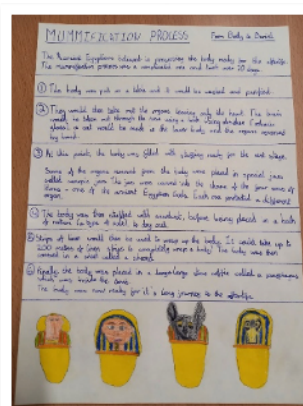 MUMMIFICATION PROCESS From Body to Burial
The Ancient Egyptians believed in preserving the body ready for the afterlife.
The mummification process was a complicated one and took over 70 days.
① The body was put on a table and it would be washed and purified.
② They would then take out the organs leaving only the heart. The brain
would be taken out through the nose using a
a cut would be made in the lower body and the organs removed
by hand.
③ At this point, the body was filled with stuffing ready for the next stage.
Some of the organs removed from the body were placed in special jars
called canopic jars. The jars were carved into the shape of the four sons of
Horus - one of the ancient Egyptian Gods. Each one protected a different
organ.
④ The body was then stuffed with sawdust, before being placed in a bath
of natron (a type of salt) to dry out.
⑤ Strips of linen would then be used to wrap up the body. It could take up to
metres of linen strips to completely wrap a body! The body was then
covered in a sheet called a
⑥ Finally, the body was placed in a large stone coffin called a sarcophagus
which was inside the tomb.
The body was now ready for it's long journey to the afterlife.